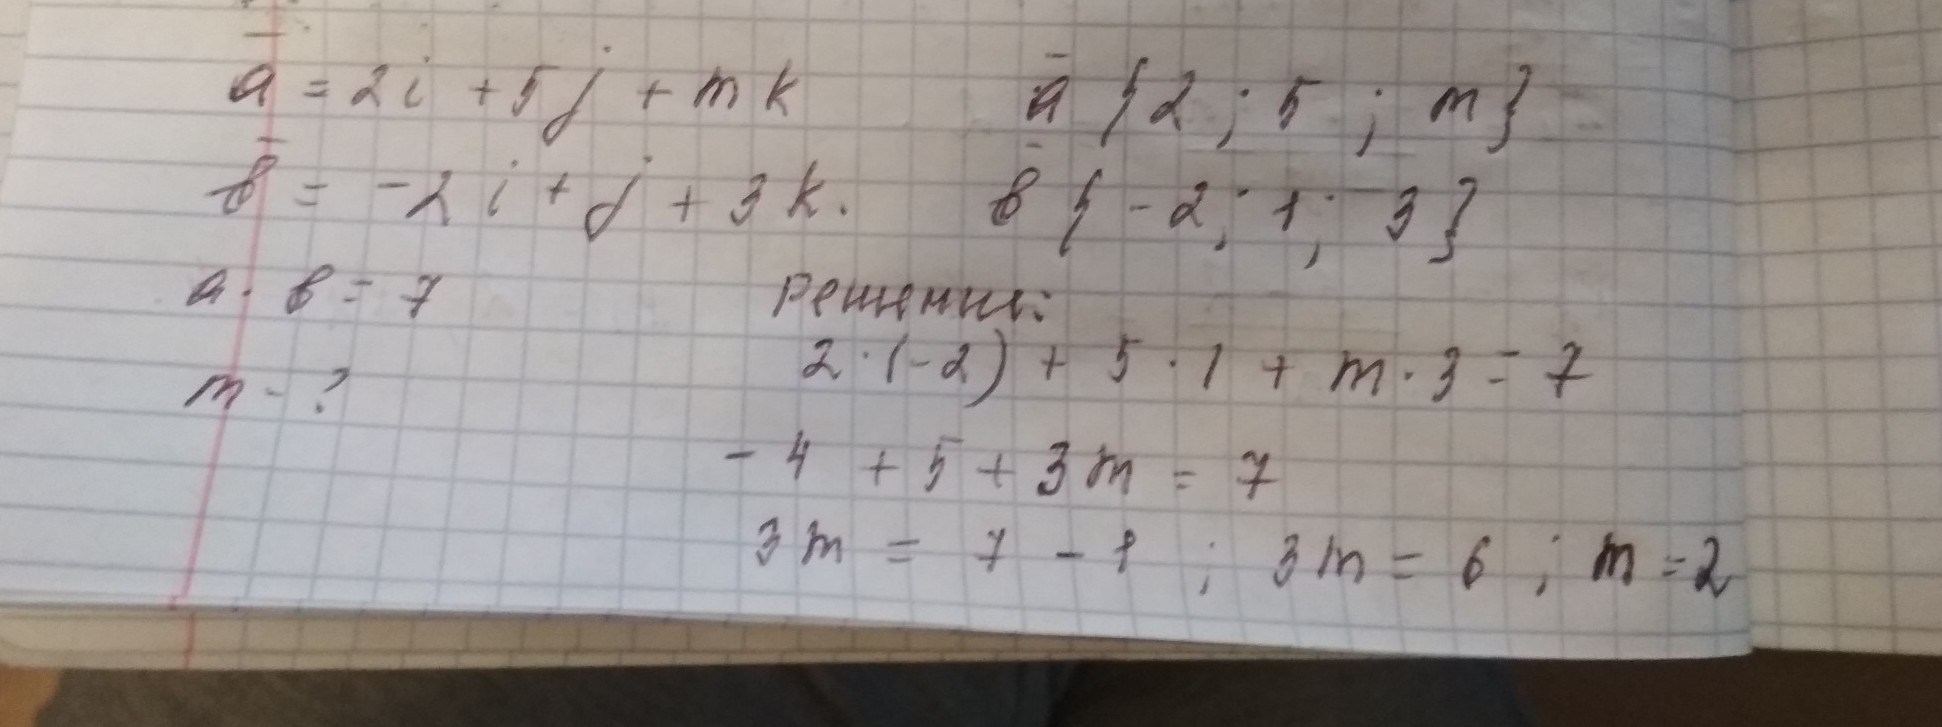 a̅ = 2i + 5j + mk a̅ {2 ; 5 ; m}
b̅ = -2i + j + 3k. b̅ {-2; 1; 3}
a · b = 7 Решение:
2 · (-2) + 5 · 1 + m · 3 = 7
m - ?
- 4 + 5 + 3m = 7
3m = 7 - 1 ; 3m = 6 ; m = 2